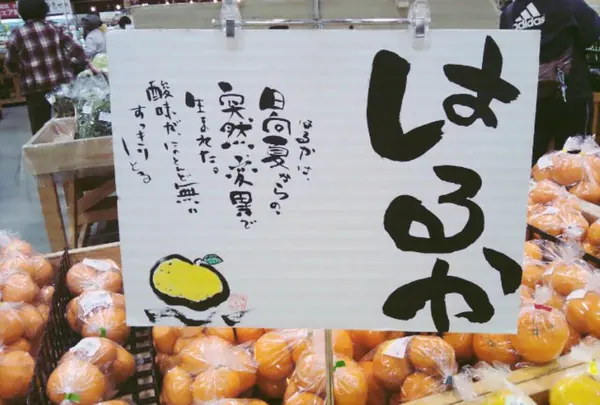 はるか
はるかは、
日向夏からの、
突然変異で
生まれた。
酸味がほとんど無い
すっきり
adidas